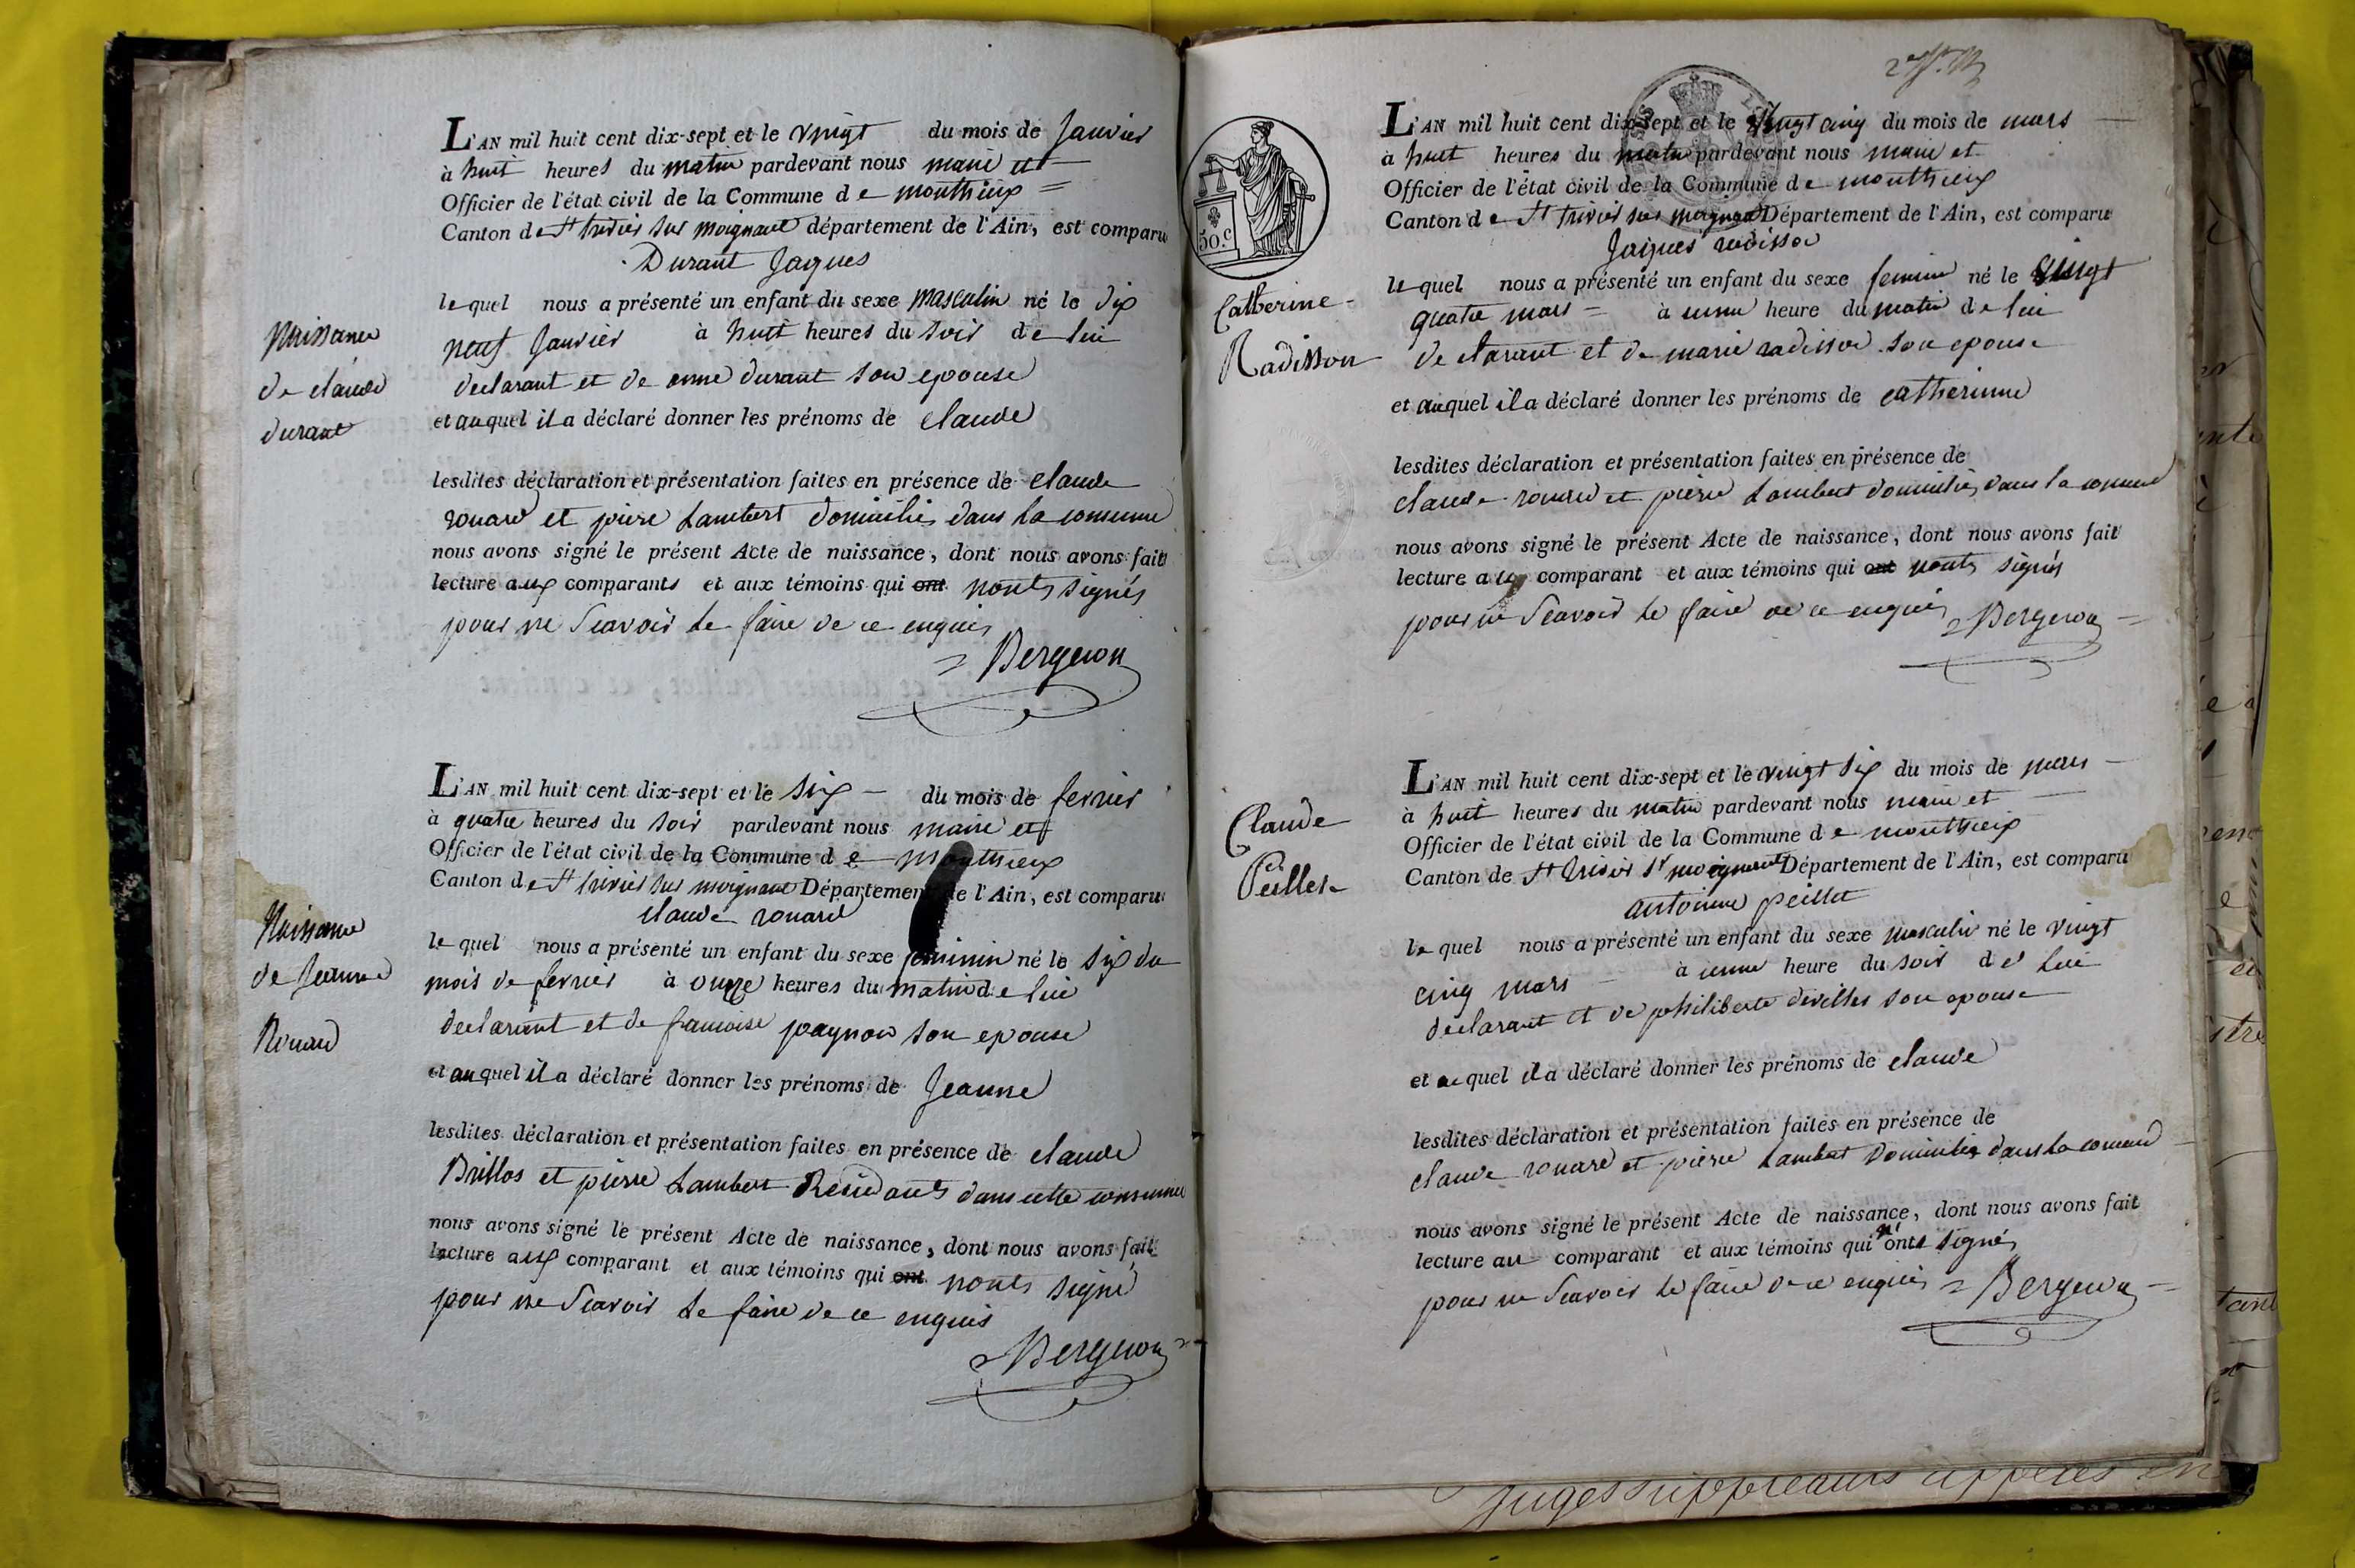 L'AN mil huit cent dix-sept et le vingt du mois de Janvier
à huit heures du matin pardevant nous maire et
Officier de l'état civil de la Commune de monthieux =
Canton de St trivier sur moignant département de l'Ain, est comparu
Durant Jaques
lequel nous a présenté un enfant du sexe masculin né le dix
neuf Janvier à huit heures du soir de lui
declarant et de anne durant son epouse
et auquel il a déclaré donner les prénoms de claude
lesdites déclaration et présentation faites en présence de claude
rouard et piere Lambert domicilies dans la comune
nous avons signé le présent Acte de naissance, dont nous avons fait
lecture aux comparants et aux témoins qui ont nonts signés
pour ne Scavoir le faire de ce enquis
Bergeron
Naissance
de claude
durant
L'AN mil huit cent dix-sept et le six du mois de fevrier
à quatre heures du soir pardevant nous maire et
Officier de l'état civil de la Commune de monthieux
Canton de St trivier sur moignant Département de l'Ain, est comparu
claude rouard
lequel nous a présenté un enfant du sexe feminin né le six du
mois de fevrier à onzze heures du matin de lui
declarant et de francoise paynon son epouse
et auquel il a déclaré donner les prénoms de Jeanne
lesdites déclaration et présentation faites en présence de claude
Brillos et pierre Lambert Residants dans cette commune
nous avons signé le présent Acte de naissance, dont nous avons fait
lecture aux comparant et aux témoins qui ont nonts signé
pour ne Scavoir le faire de ce enquis
Bergeron
Naissance
de Jeanne
Rouard
50.c
L'AN mil huit cent dix-sept et le vingt cinq du mois de mars
à huit heures du matin pardevant nous maire et
Officier de l'état civil de la Commune de monthieux
Canton de St trivier sur moignant Département de l'Ain, est comparu
Jaques radisson
lequel nous a présenté un enfant du sexe feminin né le vingt
quatre mars = à unne heure du matin de lui
declarant et de marie radisson son epouse
et auquel il a déclaré donner les prénoms de catherinne
lesdites déclaration et présentation faites en présence de
claude rouard et pierre Lambert domicilies dans la comune
nous avons signé le présent Acte de naissance, dont nous avons fait
lecture aux comparant et aux témoins qui ont nonts signés
pour ne Scavoir le faire de ce enquis Bergeron
Catherine
Radisson
L'AN mil huit cent dix-sept et le vingt six du mois de mars
à huit heures du matin pardevant nous maire et
Officier de l'état civil de la Commune de monthieux
Canton de St trivier sr moignant Département de l'Ain, est comparu
antoinne peillet
lequel nous a présenté un enfant du sexe masculin né le vingt
cinq mars à unne heure du soir de lui
declarant et de philiberte devilles son epouse
et auquel il a déclaré donner les prénoms de claude
lesdites déclaration et présentation faites en présence de
claude rouard et pierre Lambert domicilies dans la comune
nous avons signé le présent Acte de naissance, dont nous avons fait
lecture au comparant et aux témoins qui n'onts signés
pour ne Scavoir le faire de ce enquis Bergeron
Claude
Peillet